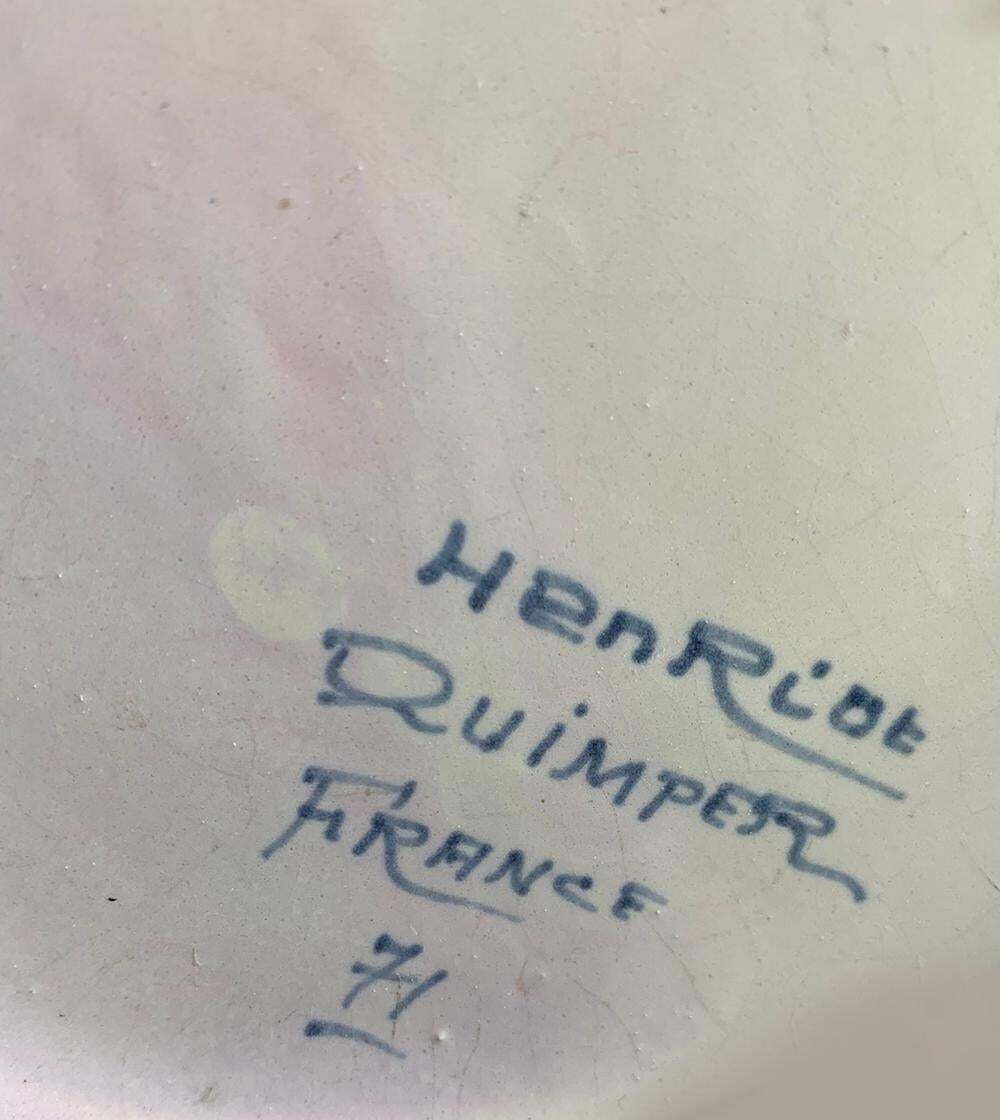 HenRiot
QUiMPER
FRANCE
71